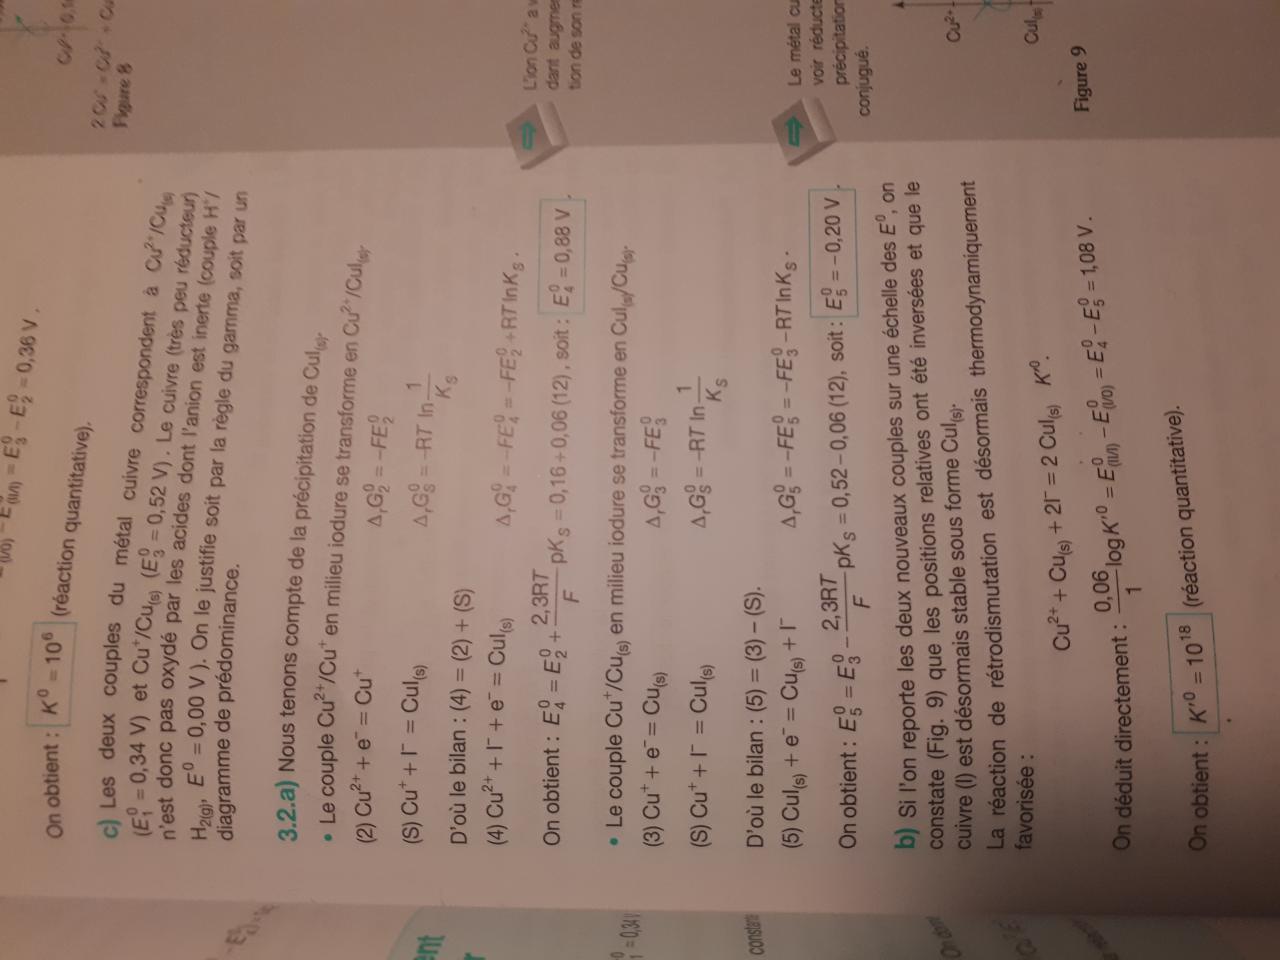 = E⁰₃ − E⁰₂ = 0,36 V .
On obtient : K⁰ = 10⁶ (réaction quantitative).
c) Les deux couples du métal cuivre correspondent à Cu²⁺/Cu(s)
(E⁰₁ = 0,34 V) et Cu⁺/Cu(s) (E⁰₃ = 0,52 V) . Le cuivre (très peu réducteur)
n'est donc pas oxydé par les acides dont l'anion est inerte (couple H⁺/
H₂(g), E⁰ = 0,00 V ). On le justifie soit par la règle du gamma, soit par un
diagramme de prédominance.
3.2.a) Nous tenons compte de la précipitation de CuI(s).
• Le couple Cu²⁺/Cu⁺ en milieu iodure se transforme en Cu²⁺/CuI(s).
(2) Cu²⁺ + e⁻ = Cu⁺ ΔᵣG⁰₂ = −FE⁰₂
(S) Cu⁺ + I⁻ = CuI(s) ΔᵣG⁰S = −RT ln 1/KS
D'où le bilan : (4) = (2) + (S)
(4) Cu²⁺ + I⁻ + e⁻ = CuI(s) ΔᵣG⁰₄ = −FE⁰₄ = −FE⁰₂ + RT lnKS .
On obtient : E⁰₄ = E⁰₂ + 2,3RT/F pKS = 0,16 + 0,06 (12) , soit : E⁰₄ = 0,88 V .
• Le couple Cu⁺/Cu(s) en milieu iodure se transforme en CuI(s)/Cu(s).
(3) Cu⁺ + e⁻ = Cu(s) ΔᵣG⁰₃ = −FE⁰₃
(S) Cu⁺ + I⁻ = CuI(s) ΔᵣG⁰S = −RT ln 1/KS
D'où le bilan : (5) = (3) − (S).
(5) CuI(s) + e⁻ = Cu(s) + I⁻ ΔᵣG⁰₅ = −FE⁰₅ = −FE⁰₃ − RT lnKS .
On obtient : E⁰₅ = E⁰₃ − 2,3RT/F pKS = 0,52 − 0,06 (12), soit : E⁰₅ = −0,20 V .
b) Si l'on reporte les deux nouveaux couples sur une échelle des E⁰, on
constate (Fig. 9) que les positions relatives ont été inversées et que le
cuivre (I) est désormais stable sous forme CuI(s).
La réaction de rétrodismutation est désormais thermodynamiquement
favorisée :
Cu²⁺ + Cu(s) + 2I⁻ = 2 CuI(s) K'⁰ .
On déduit directement : 0,06/1 log K'⁰ = E⁰(II/I) − E⁰(I/0) = E⁰₄ − E⁰₅ = 1,08 V .
On obtient : K'⁰ = 10¹⁸ (réaction quantitative).
Figure 8
L'ion Cu²⁺ a v
dant augme
tion de son r
Le métal cu
voir réducte
précipitation
conjugué.
Cu²⁺
CuI(s)
Figure 9
ent
= 0,34 V
constan